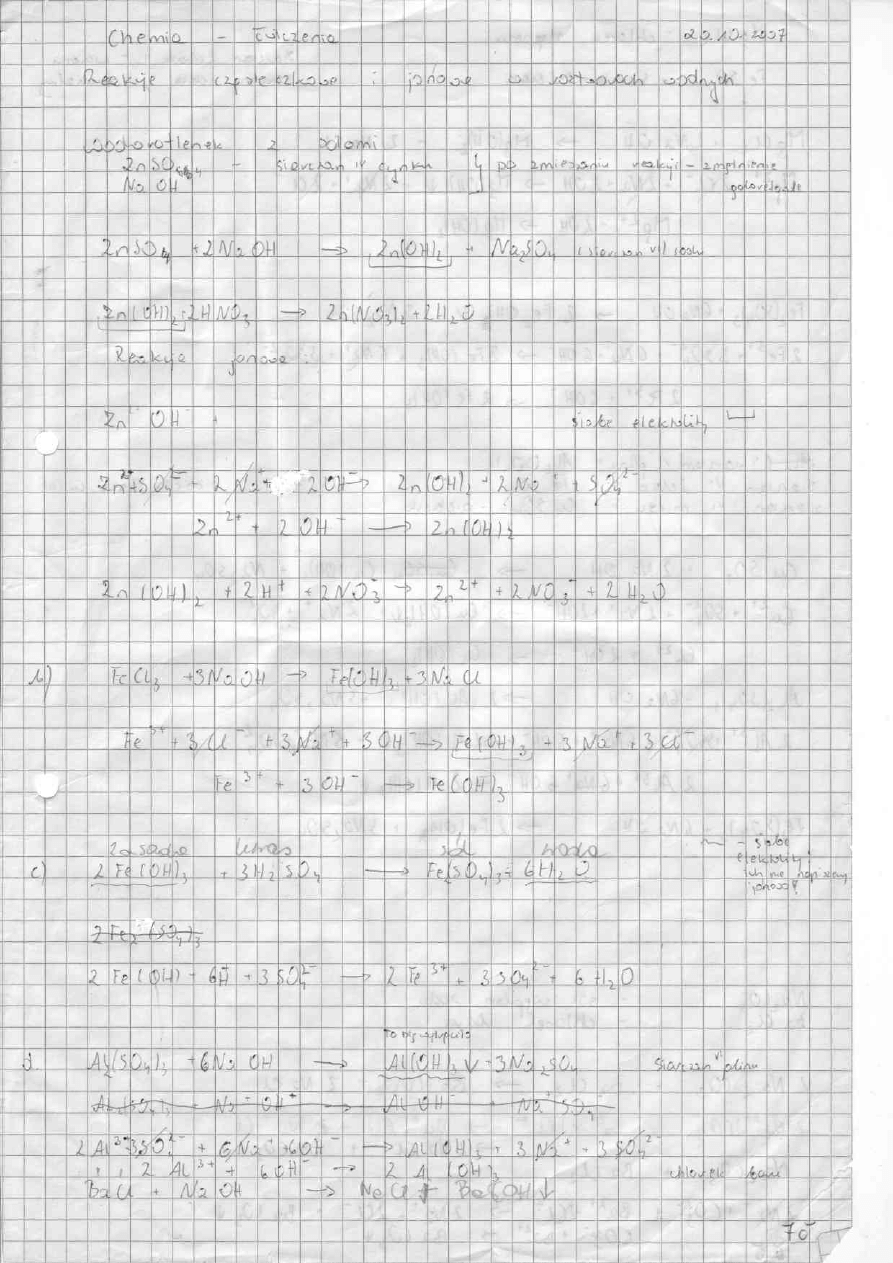 Chemia - ćwiczenia 20.10.2007
Reakcje cząsteczkowe i jonowe w roztworach wodnych
wodorotlenek z solami
ZnSO4 - siarczan VI cynku } po zmieszaniu reakcji -
NaOH
ZnSO4 + 2NaOH → Zn(OH)2 + Na2SO4 siarczan VI sodu
Zn(OH)2 + 2HNO3 → Zn(NO3)2 + 2H2O
Reakcje jonowe:
Zn OH
słabe elektrolity
Zn2+ + SO42- + 2Na+ + 2OH- → Zn(OH)2 + 2Na+ + SO42-
Zn2+ + 2OH- → Zn(OH)2
Zn(OH)2 + 2H+ + 2NO3- → Zn2+ + 2NO3- + 2H2O
b) FeCl3 + 3NaOH → Fe(OH)3 + 3NaCl
Fe3+ + 3Cl- + 3Na+ + 3OH- → Fe(OH)3 + 3Na+ + 3Cl-
Fe3+ + 3OH- → Fe(OH)3
zasada kwas sól woda
c) 2Fe(OH)3 + 3H2SO4 → Fe2(SO4)3 + 6H2O
- słabe elektrolity! ich nie jonowo!
2Fe2(SO4)3
2Fe(OH) + 6H + 3SO42- → 2Fe3+ + 3SO42- + 6H2O
d. Al2(SO4)3 + 6NaOH → Al(OH)3 ↓ + 3Na2SO4 siarczan VI glinu
2Al3+ 3SO42- + 6Na+ + 6OH- → Al(OH)3 + 3Na+ + 3SO42-
2Al3+ + 6OH- → 2Al(OH)3
chlorek baru
BaCl + NaOH → NaCl + BaOH↓